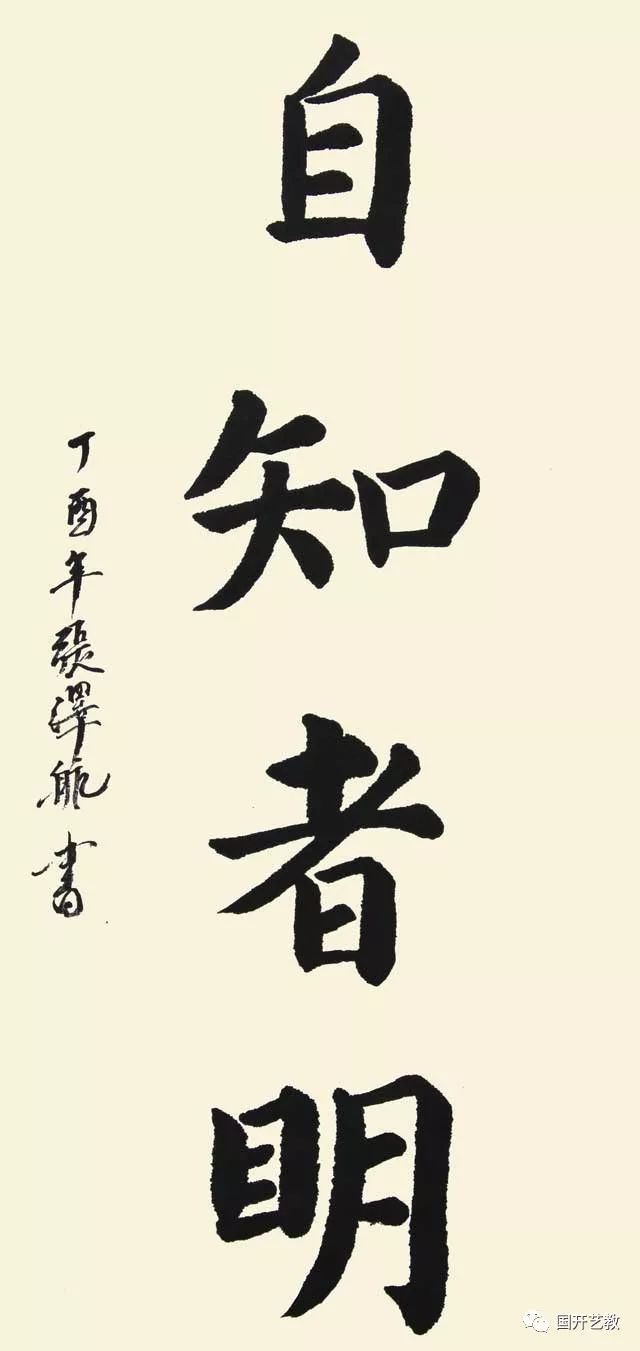 自知者明
丁酉年張澤航書
国开艺教